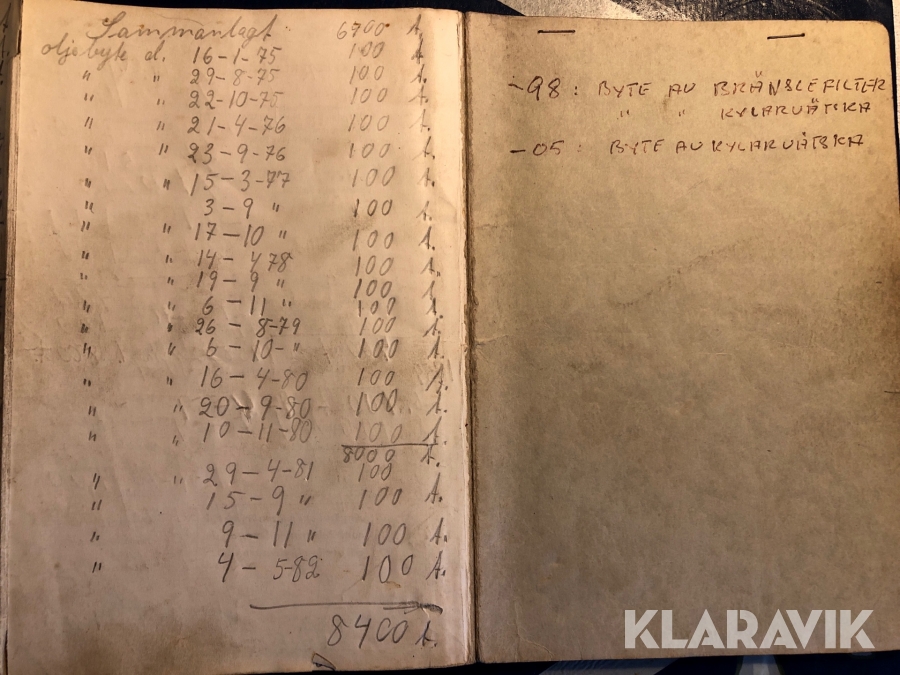 Sammanlagt: 6700 t.
oljebyte d. 16-1-75 100 t.
" " 29-8-75 100 t.
" " 22-10-75 100 t.
" " 21-4-76 100 t.
" " 23-9-76 100 t.
" " 15-3-77 100 t.
" " 3-9 " 100 t.
" " 17-10 " 100 t.
" " 14-478 100 t.
" " 19-9 " 100 t.
" " 6-11 " 100 t.
" " 26-8-79 100 t.
" " 6-10-" 100 t.
" " 16-4-80 100 t.
" " 20-9-80 100 t.
" " 10-11-80 100 t.
8000 t.
" " 29-4-81 100
" 15-9 " 100 t.
" 9-11 " 100 t.
" 4-5-82 100 t.
8400 t.
-98: BYTE AV BRÄNSLEFILTER
" " KYLARVÄTSKA
-05: BYTE AV KYLARVÄTSKA
KLARAVIK